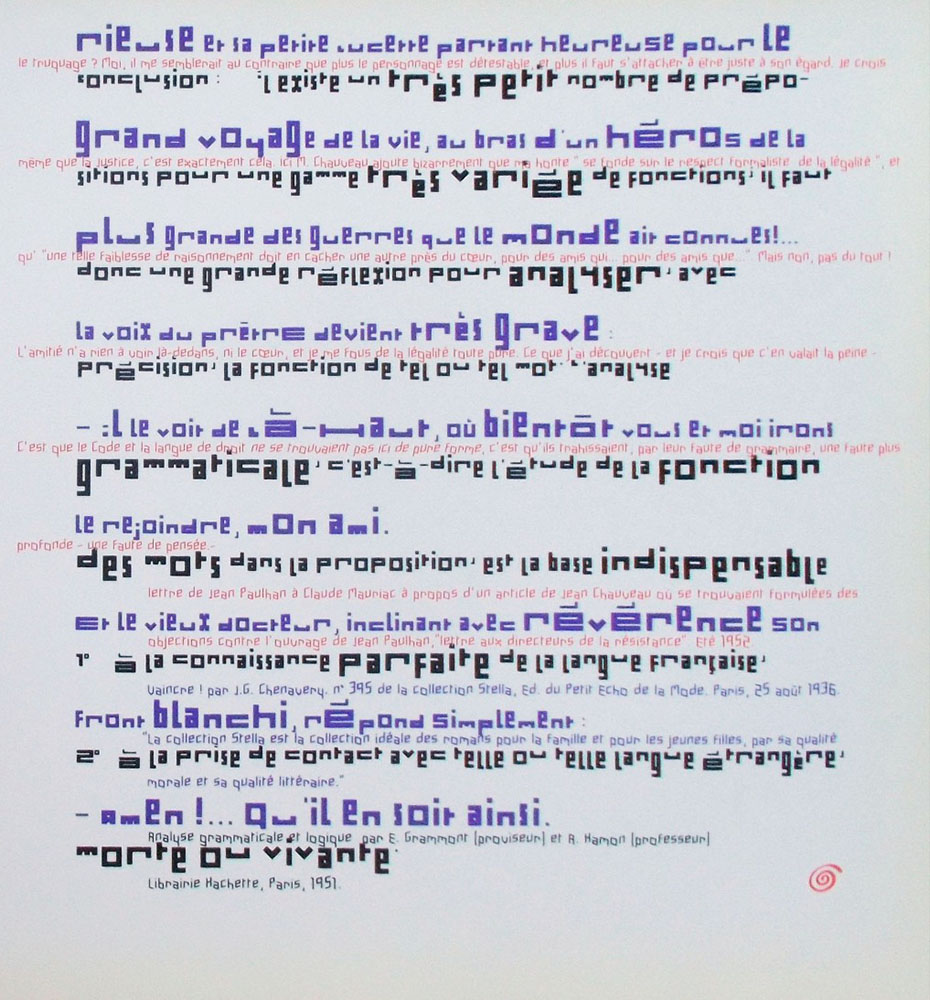 rieuse et sa petite Lucette partant heureuse pour le
le truquage ? Moi, il me semblerait au contraire que plus le personnage est détestable, et plus il faut s'attacher à être juste à son égard. Je crois
conclusion : il existe un très petit nombre de prépo-
grand voyage de la vie, au bras d'un héros de la
même que la justice, c'est exactement cela. Ici M. Chauveau ajoute bizarrement que ma honte " se fonde sur le respect formaliste de la légalité ", et
sitions pour une gamme très variée de fonctions, il faut
plus grande des guerres que le monde ait connues!...
qu' "une telle faiblesse de raisonnement doit en cacher une autre près du cœur, pour des amis qui... pour des amis que..." Mais non, pas du tout !
donc une grande réflexion pour analyser, avec
la voix du prêtre devient très grave :
L'amitié n'a rien à voir là-dedans, ni le cœur, et je me fous de la légalité toute pure. Ce que j'ai découvert - et je crois que c'en valait la peine -
précision, la fonction de tel ou tel mot. L'analyse
- il le voit de là-haut, où bientôt vous et moi irons
C'est que le Code et la langue de droit ne se trouvaient pas ici de pure forme, c'est qu'ils trahissaient, par leur faute de grammaire, une faute plus
grammaticale, c'est-à-dire l'étude de la fonction
le rejoindre, mon ami.
profonde - une faute de pensée.-
des mots dans la proposition, est la base indispensable
lettre de Jean Paulhan à Claude Mauriac à propos d'un article de Jean Chauveau où se trouvaient formulées des
Et le vieux docteur, inclinant avec révérence son
objections contre l'ouvrage de Jean Paulhan,"lettre aux directeurs de la résistance" Eté 1952.
1° à la connaissance parfaite de la langue française,
Vaincre ! par J.G. Chenavery. n° 395 de la collection Stella, Ed. du Petit Echo de la Mode. Paris, 25 août 1936.
front blanchi, répond simplement :
"La collection Stella est la collection idéale des romans pour la famille et pour les jeunes filles, par sa qualité
2° à la prise de contact avec telle ou telle langue étrangère,
morale et sa qualité littéraire."
- Amen !... Qu'il en soit ainsi.
Analyse grammaticale et logique par E. Grammont (proviseur) et A. Hamon (professeur)
morte ou vivante.
Librairie Hachette, Paris, 1951.